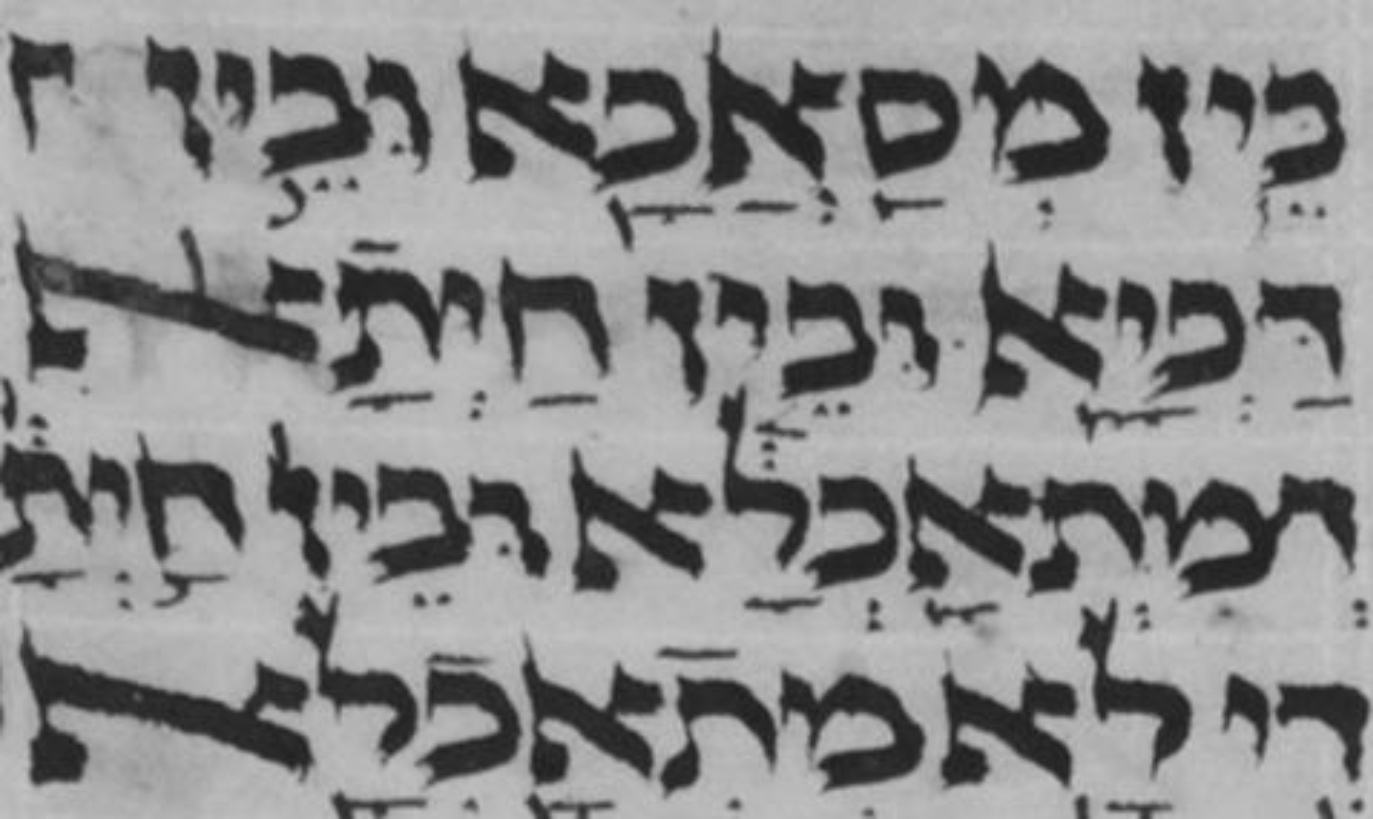 בין מסאבא ובין ד
דכיא ובין חיתא
דמתאכלא ובין חית
די לא מתאכלא